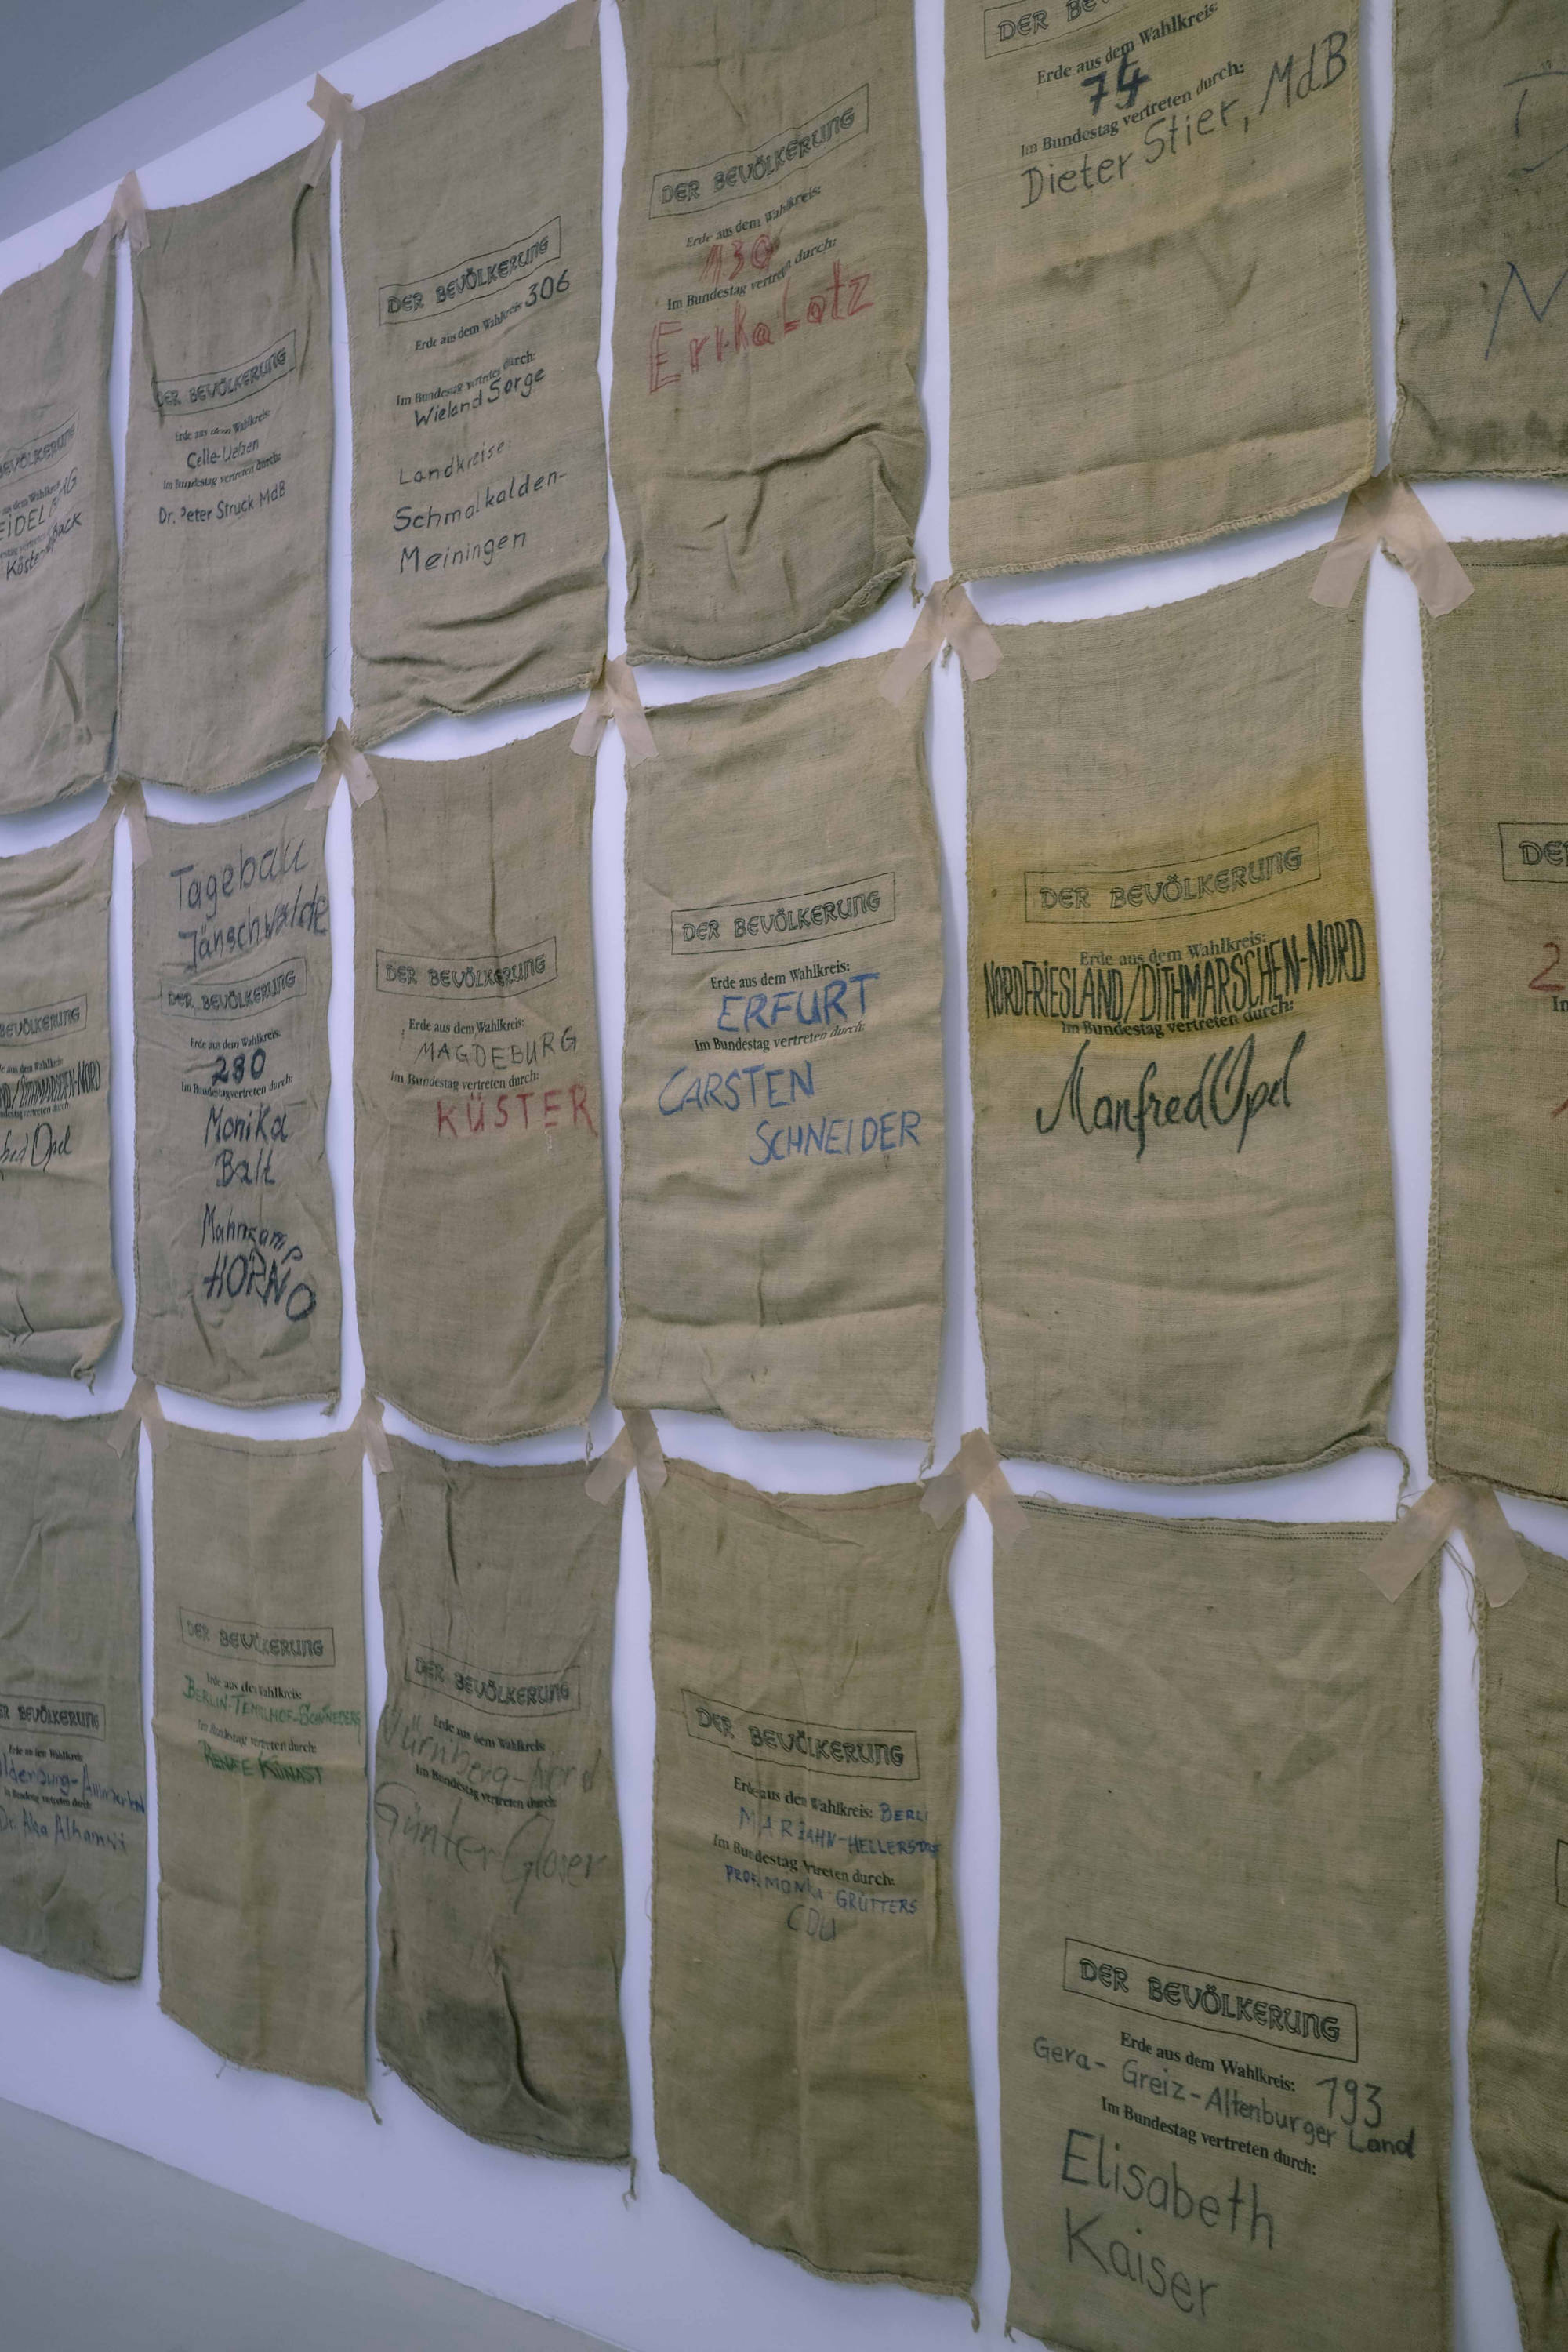 BEVÖLKERUNG
aus dem Wahlkreis
DER BEVÖLKERUNG
Erde aus dem Wahlkreis:
Celle-Uelzen
Im Bundestag vertreten durch:
Dr. Peter Struck MdB
DER BEVÖLKERUNG
Erde aus dem Wahlkreis 306
Im Bundestag vertreten durch:
Wieland Sorge
Landkreise:
Schmalkalden-
Meiningen
DER BEVÖLKERUNG
Erde aus dem Wahlkreis:
130
Im Bundestag vertreten durch:
Erika Lotz
DER
Erde aus dem Wahlkreis:
74
Im Bundestag vertreten durch:
Dieter Stier, MdB
BEVÖLKERUNG
aus dem Wahlkreis:
/DITHMARSCHEN-NORD
vertreten durch:
Opel
Tagebau
Jänschwalde
DER BEVÖLKERUNG
Erde aus dem Wahlkreis:
280
Im Bundestag vertreten durch:
Monika
Balt
Mahncamp
HORNO
DER BEVÖLKERUNG
Erde aus dem Wahlkreis:
MAGDEBURG
Im Bundestag vertreten durch:
KÜSTER
DER BEVÖLKERUNG
Erde aus dem Wahlkreis:
ERFURT
Im Bundestag vertreten durch:
CARSTEN
SCHNEIDER
DER BEVÖLKERUNG
Erde aus dem Wahlkreis:
NORDFRIESLAND/DITHMARSCHEN-NORD
Im Bundestag vertreten durch:
Manfred Opel
DER
2
BEVÖLKERUNG
Erde aus dem Wahlkreis
Im Bundestag vertreten durch:
DER BEVÖLKERUNG
Erde aus dem Wahlkreis:
BERLIN-TEMPELHOF-SCHÖNEBERG
Im Bundestag vertreten durch:
RENATE KÜNAST
DER BEVÖLKERUNG
Erde aus dem Wahlkreis
Nürnberg-Nord
Im Bundestag vertreten durch:
Günter Gloser
DER BEVÖLKERUNG
Erde aus dem Wahlkreis: BERLIN
MARZAHN-HELLERSDORF
Im Bundestag vertreten durch:
PROF. MONIKA GRÜTTERS
CDU
DER BEVÖLKERUNG
Erde aus dem Wahlkreis: 193
Gera-Greiz-Altenburger Land
Im Bundestag vertreten durch:
Elisabeth
Kaiser